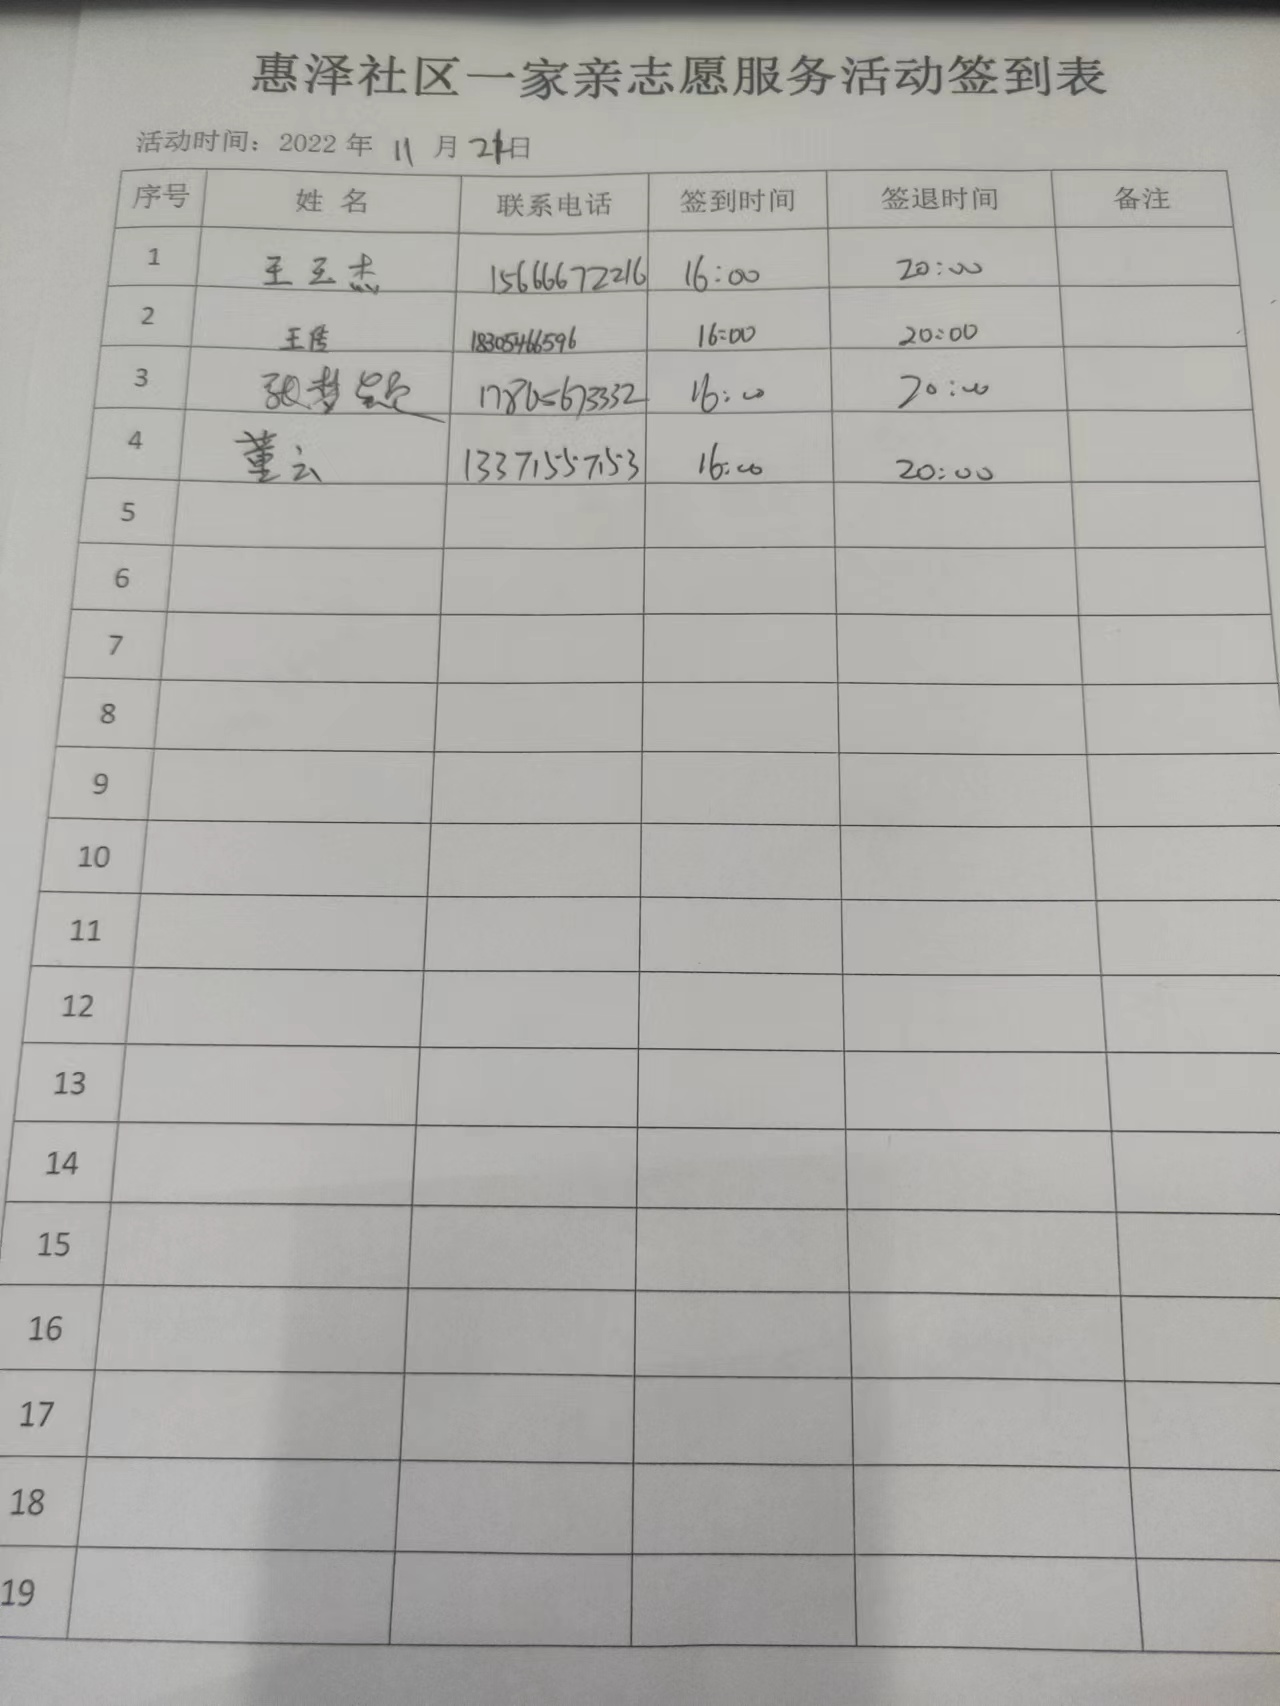 惠泽社区一家亲志愿服务活动签到表
活动时间：2022 年 11 月 21日
序号 姓 名 联系电话 签到时间 签退时间 备注
1 王玉杰 15666672216 16:00 20:00
2 王 18305466596 16:00 20:00
3 张梦 17865673332 16:00 20:00
4 董云 13371557153 16:00 20:00
5
6
7
8
9
10
11
12
13
14
15
16
17
18
19